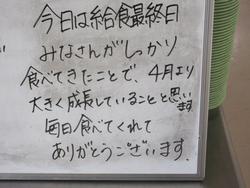 今日は給食最終日
みなさんがしっかり
食べてきたことで、4月より
大きく成長していることと思い
ます
毎日食べてくれて
ありがとうございます。